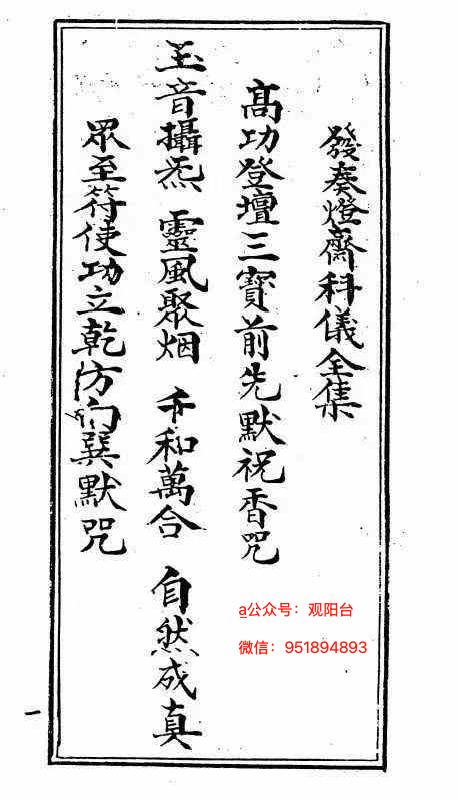 發奏燈齋科儀全集
高功登壇三寶前先默祝香咒
玉音攝炁 靈風聚烟 千和萬合 自然成真
眾至符使功立乾方向巽默咒
a公众号：观阳台
微信：951894893
一